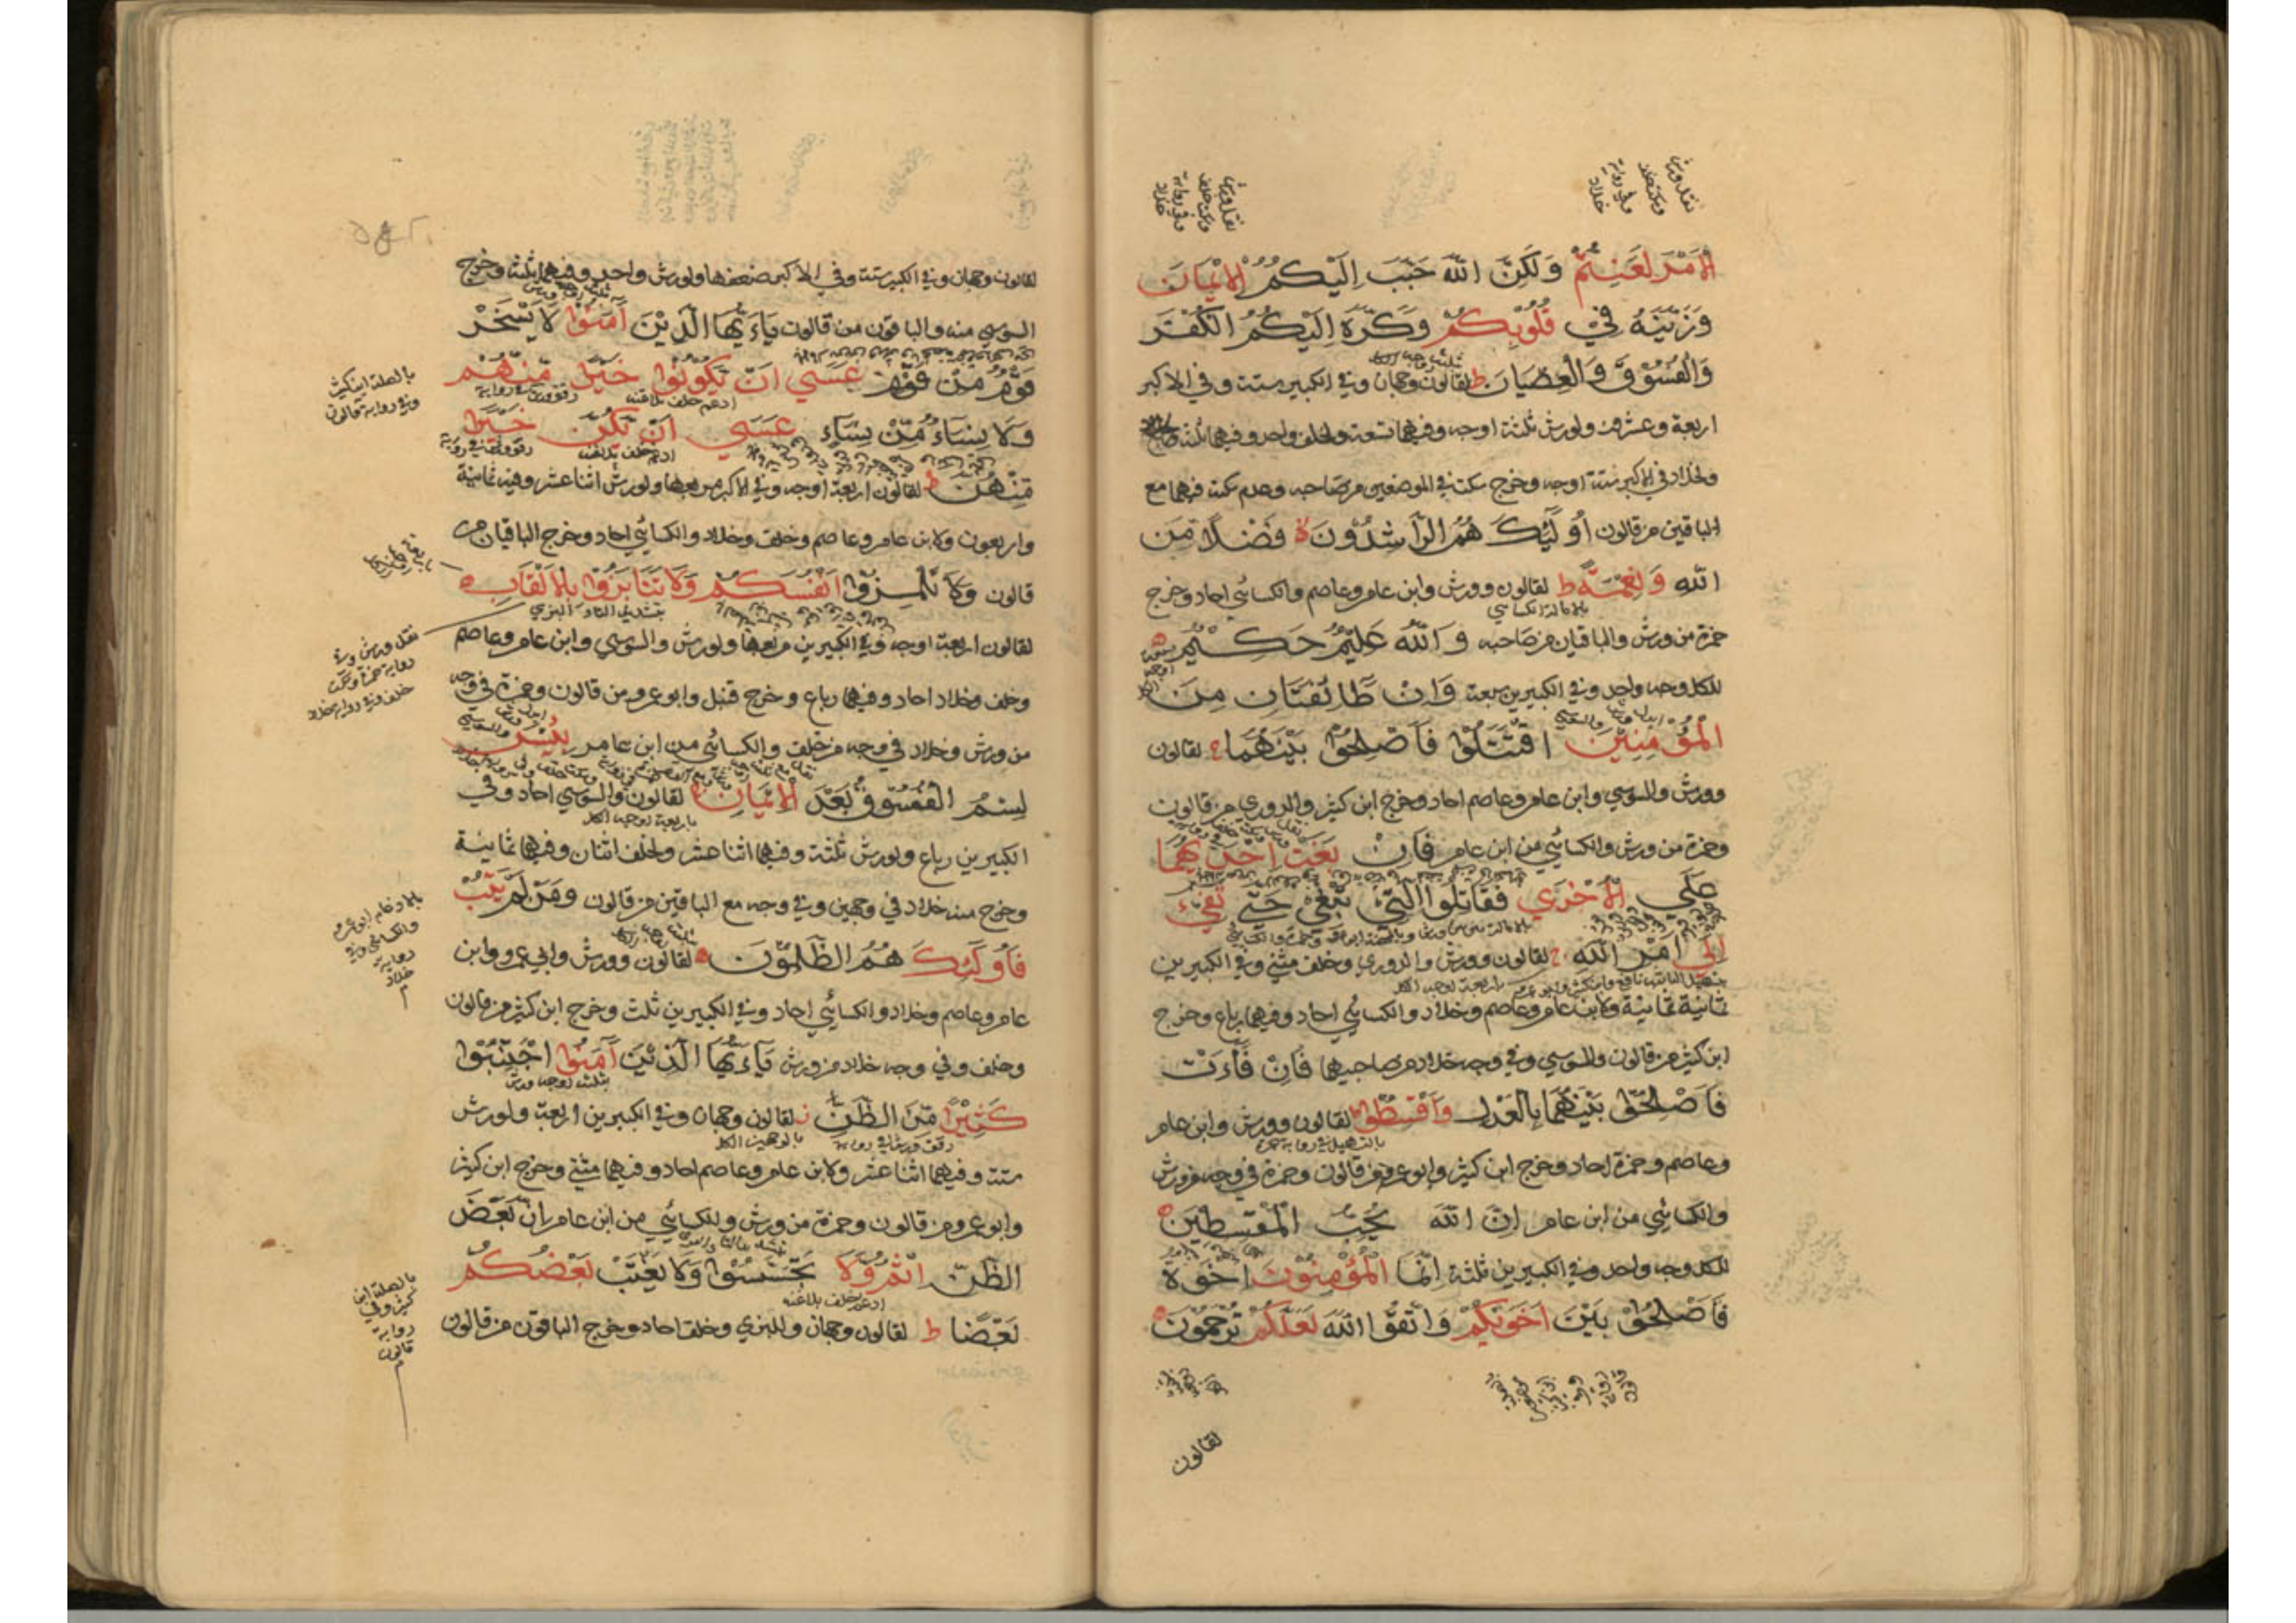 الْأَمْرِ لَعَنِتُّمْ وَلَكِنَّ اللَّهَ حَبَّبَ إِلَيْكُمُ الْإِيمَانَ
وَزَيَّنَهُ فِي قُلُوبِكُمْ وَكَرَّهَ إِلَيْكُمُ الْكُفْرَ
وَالْفُسُوقَ وَالْعِصْيَانَ ط لقالون وجهان وفي الكبير ستة وفي الاكبر
اربعة وعشرون ولورش ثلثة اوجه وفيهما تسعة ولخلف واحد وفيهما ثلثة
ولخلاد في الاكبر ستة اوجه وخرج سكت في الموضعين من صاحبه وعدم سكت فيهما مع
الباقين من قالون أُولَئِكَ هُمُ الرَّاشِدُونَ لا فَضْلًا مِنَ
اللَّهِ وَنِعْمَةً ط لقالون وورش وابن عامر وعاصم والكسائي احاد وخرج
حمزة من ورش والباقيان من صاحبه وَاللَّهُ عَلِيمٌ حَكِيمٌ
للكل وجه واحد وفي الكبيرين سبعة وَإِنْ طَائِفَتَانِ مِنَ
الْمُؤْمِنِينَ اقْتَتَلُوا فَأَصْلِحُوا بَيْنَهُمَا ج لقالون
وورش والسوسي وابن عامر وعاصم احاد وخرج ابن كثير والدوري من قالون
وحمزة من ورش والكسائي من ابن عامر فَإِنْ بَغَتْ إِحْدَاهُمَا
عَلَى الْأُخْرَى فَقَاتِلُوا الَّتِي تَبْغِي حَتَّى تَفِيءَ
إِلَى أَمْرِ اللَّهِ ج لقالون وورش والدوري وخلف مثنى وفي الكبيرين
ثمانية ثمانية ولابن عامر وعاصم وخلاد والكسائي احاد وفيهما رباع وخرج
ابن كثير من قالون والسوسي وفي وجه خلاد من صاحبيهما فَإِنْ فَاءَتْ
فَأَصْلِحُوا بَيْنَهُمَا بِالْعَدْلِ وَأَقْسِطُوا ط لقالون وورش وابن عامر
وعاصم وحمزة احاد وخرج ابن كثير وابو عمرو من قالون وحمزة في وجه من ورش
والكسائي من ابن عامر إِنَّ اللَّهَ يُحِبُّ الْمُقْسِطِينَ
للكل وجه واحد وفي الكبيرين ثلثة إِنَّمَا الْمُؤْمِنُونَ إِخْوَةٌ
فَأَصْلِحُوا بَيْنَ أَخَوَيْكُمْ وَاتَّقُوا اللَّهَ لَعَلَّكُمْ تُرْحَمُونَ
لقالون
لقالون وجهان وفي الكبير ستة وفي الاكبر ضعفها ولورش واحد وفيهما ثلثة وخرج
السوسي منه والباقون من قالون يَاءَيُّهَا الَّذِينَ آمَنُوا لَا يَسْخَرْ
قَوْمٌ مِنْ قَوْمٍ عَسَى أَنْ يَكُونُوا خَيْرًا مِنْهُمْ
وَلَا نِسَاءٌ مِنْ نِسَاءٍ عَسَى أَنْ يَكُنَّ خَيْرًا
مِنْهُنَّ ط لقالون اربعة اوجه وفي الاكبر مربعها ولورش اثنا عشر وفيه ثمانية
واربعون ولابن عامر وعاصم وخلف وخلاد والكسائي احاد وخرج الباقيان من
قالون وَلَا تَلْمِزُوا أَنْفُسَكُمْ وَلَا تَنَابَزُوا بِالْأَلْقَابِ
لقالون اربعة اوجه وفي الكبيرين مربعها ولورش والسوسي وابن عامر وعاصم
وخلف وخلاد احاد وفيهما رباع وخرج قنبل وابو عمرو من قالون وحمزة في وجه
من ورش وخلاد في وجه من خلف والكسائي من ابن عامر بِئْسَ
لِسْمُ الْفُسُوقُ بَعْدَ الْإِيمَانِ لقالون والسوسي احاد وفي
الكبيرين رباع ولورش ثلثة وفيهما اثنا عشر ولخلف اثنان وفيهما ثمانية
وخرج منه خلاد في وجهين وفي وجه مع الباقين من قالون وَمَنْ لَمْ يَتُبْ
فَأُولَئِكَ هُمُ الظَّالِمُونَ لقالون وورش وابي عمرو وابن
عامر وعاصم وخلاد والكسائي احاد وفي الكبيرين ثلث وخرج ابن كثير من قالون
وخلف وفي وجه خلاد من ورش يَاءَيُّهَا الَّذِينَ آمَنُوا اجْتَنِبُوا
كَثِيرًا مِنَ الظَّنِّ لقالون وجهان وفي الكبيرين اربعة ولورش
ستة وفيهما اثنا عشر ولابن عامر وعاصم احاد وفيهما مثنى وخرج ابن كثير
وابو عمرو من قالون وحمزة من ورش والكسائي من ابن عامر إِنَّ بَعْضَ
الظَّنِّ إِثْمٌ وَلَا تَجَسَّسُوا وَلَا يَغْتَبْ بَعْضُكُمْ
بَعْضًا ط لقالون وجهان وللبزي وخلف احاد وخرج الباقون من قالون
بالصلة ابن كثير
وفي رواية قالون
نقل ورش وفي
رواية حمزة وسكت
خلف وفي رواية خلاد
بالادغام ابو عمرو
والكسائي وفي
رواية
خلاد
بالصلة ابن
كثير وفي
رواية
قالون